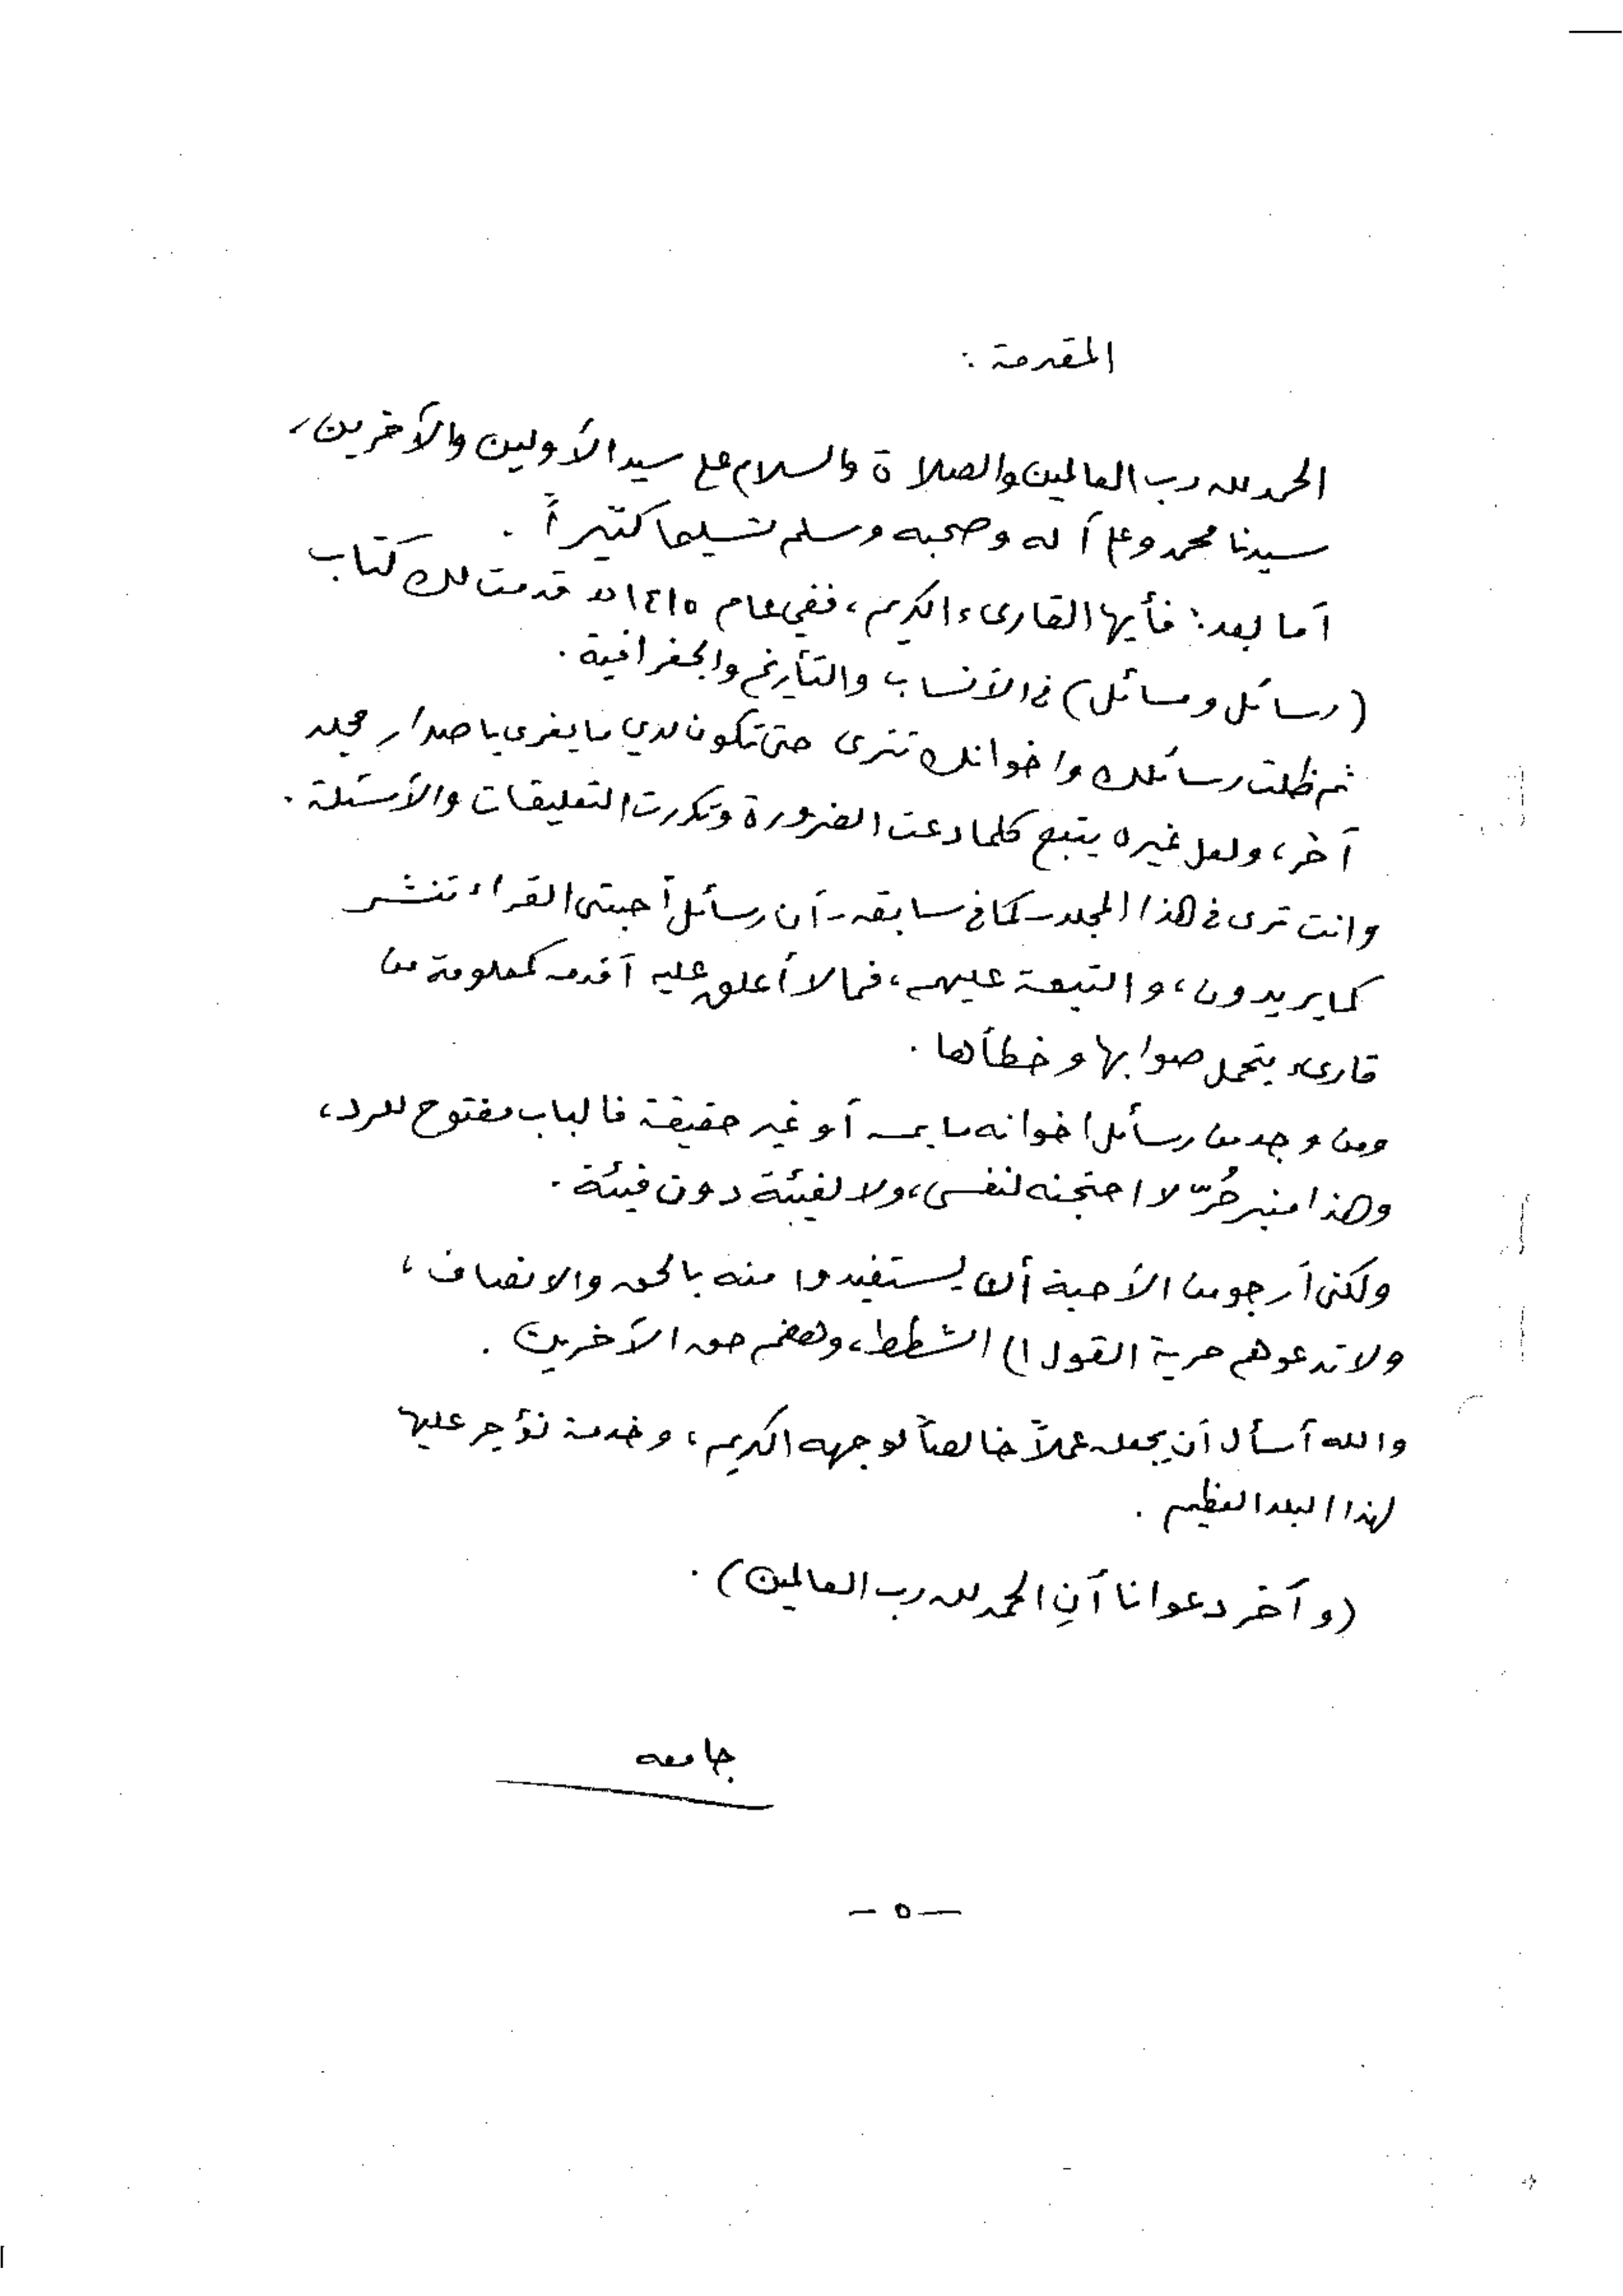 المقدمة :
الحمد لله رب العالمين والصلاة والسلام على سيد الأولين والآخرين،
سيدنا محمد وعلى آله وصحبه وسلم تسليما كثيراً .
أما بعد: فأيها القارىء الكريم، ففي عام ١٤١٥ه قدمت لك كتاب
(رسائل ومسائل) في الأنساب والتأريخ والجغرافية .
ثم ظلت رسائلك واخوانك تترى حتى تكون لدي ما يغرى باصدار مجلد
آخر، ولعل غيره يتبع كلما دعت الضرورة وتكررت التعليقات والأسئلة .
وانت ترى في هذا المجلد - كما في سابقه - أن رسائل أحبتى القراء تنشر
كما يريدون، والتبعة عليهم، فما لا أعلق عليه أقدمه كمعلومة من
قارىء يتحمل صوابها وخطأها .
ومن وجد من رسائل اخوانه ما يمسه أو غير حقيقة فالباب مفتوح للرد،
وهذا منبر حُرّ لا احتجنه لنفسى، ولا لفيئة دون فيئة .
ولكنى أرجو من الأحبة أن يستفيدوا منه بالحق والانصاف،
ولا تدعوهم حرية القول الى الشطط، وهضم حق الآخرين .
والله أسأل أن يجعله عملاً خالصاً لوجهه الكريم، وخدمة نؤجر عليها
لهذا البلد العظيم .
(وآخر دعوانا أنِ الحمد لله رب العالمين) .
جامعه
— ٥ —